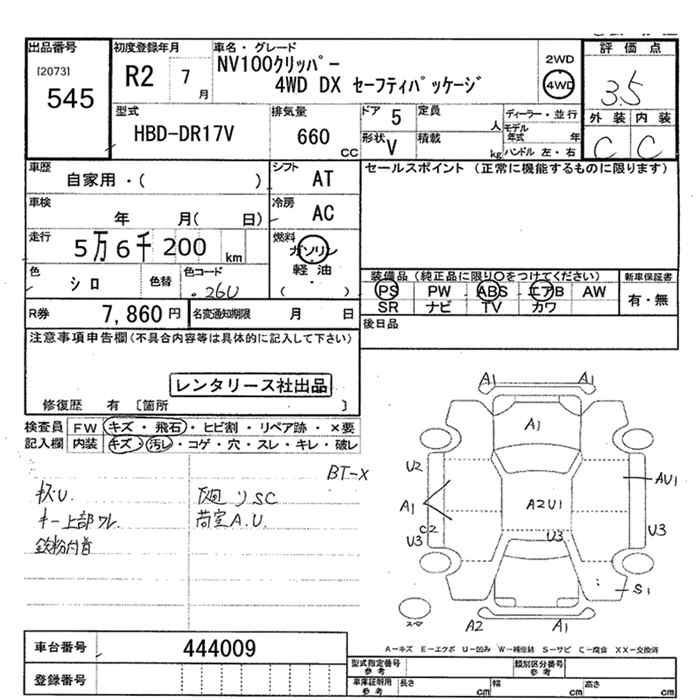 出品番号
[2073]
545
初度登録年月
R2 7 月
車名・グレード
NV100クリッパー
4WD DX セーフティパッケージ
2WD
4WD
評価点
3.5
外装 内装
C C
型式
HBD-DR17V
排気量
660 CC
ドア 5
形状 V
定員 人
積載 kg
ディーラー・並行
モデル年式 年
ハンドル 左・右
車歴
自家用・( )
シフト AT
車検
年 月( 日)
冷房 AC
走行
5万6千200 km
燃料
ガソリン
軽油
( ・ )
色
シロ
色替
色コード
26U
R券 7,860円
名変通知期限 月 日
セールスポイント (正常に機能するものに限ります)
装備品 (純正品に限り○をつけてください)
PS PW ABS エアB AW
SR ナビ TV カワ
新車保証書
有・無
後日品
注意事項申告欄(不具合内容等は具体的に記入して下さい)
レンタリース社出品
修復歴 有 〔箇所 〕
検査員記入欄
FW キズ・飛石・ヒビ割・リペア跡・×要
内装 キズ・汚レ・コゲ・穴・スレ・キレ・破レ
BT-X
キー上部ワレ
鉄粉付着
荷室A.U.
A1 A1
A1
U2
A1
C2
U3
A2U1
U3
AU1
U3
S1
A2 A1
スペア
車台番号 444009
登録番号
A-キズ E-エクボ U-凹み W-補修跡 S-サビ C-腐食 XX-交換済
型式指定番号 参考
類別区分番号 参考
車庫証明用 参考
長さ cm 幅 cm 高さ cm